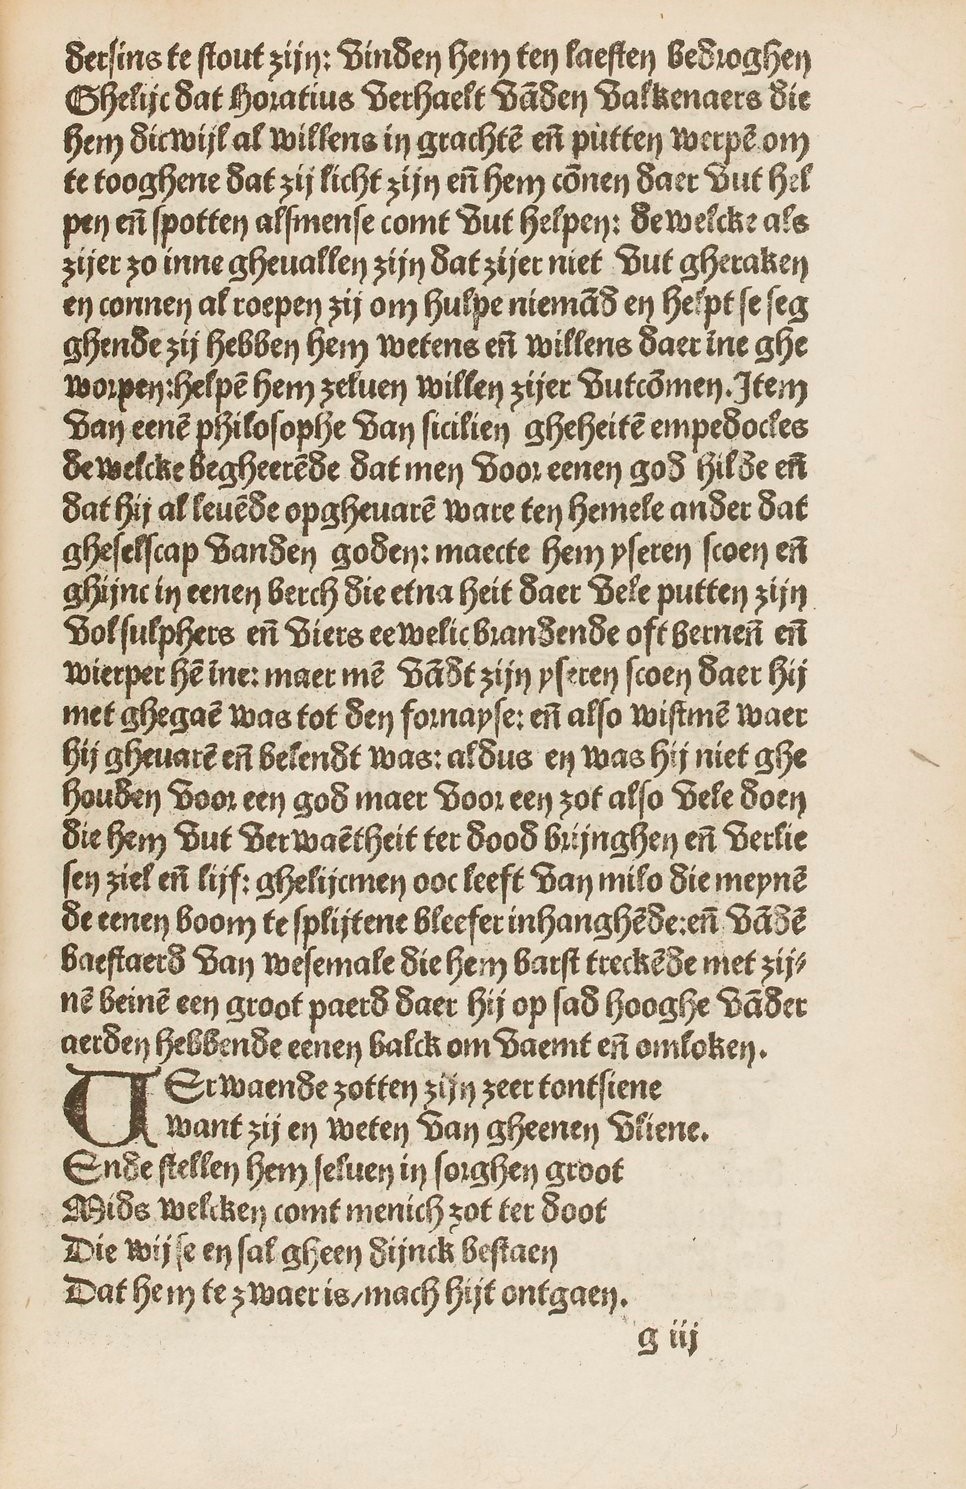 dersins te stout zijn: vinden hem ten laesten bedroghen
Ghelijc dat Horatius verhaelt vādēn valkenaers die
hem dicwijl al willens in grachtē eñ putten werpē om
te tooghene dat zij licht zijn eñ hem cōnen daer vut hel
pen eñ spotten alsmense comt vut helpen: dewelcke als
zijer zo inne gheuallen zijn dat zijer niet vut gheraken
en connen al roepen zij om hulpe niemād en helpt se seg
ghende zij hebben hem wetens eñ willens daer īne ghe
worpen:helpē hem zeluen willen zijer vutcōmen. Item
van eenē philosophe van sicilien gheheitē empedocles
dewelcke begheerēde dat men voor eenen god hilde eñ
dat hij al leuēde opgheuarē ware ten hemele ander dat
gheselscap vanden goden: maecte hem yseren scoen eñ
ghijnc in eenen berch die etna heit daer vele putten zijn
vol sulphers eñ viers eewelic brandende oft berneñ eñ
wierper hē īne: maer mē vādt zijn yseren scoen daer hij
met ghegaē was tot den fornayse: eñ also wistmē waer
hij gheuarē eñ belendt was: aldus en was hij niet ghe
houden voor een god maer voor een zot also vele doen
die hem vut verwaētheit ter dood brijnghen eñ verlie
sen ziel eñ lijf: ghelijcmen ooc leeft van milo die meynē
de eenen boom te splijtene bleefer inhanghēde:eñ vādē
baestaerd van wesemale die hem barst treckēde met zij⸗
nē beinē een groot paerd daer hij op sad hooghe vāder
aerden hebbende eenen balck om vaemt eñ omloken.
VErwaende zotten zijn zeer tontsiene
want zij en weten van gheenen vliene.
Ende stellen hem seluen in sorghen groot
Mids welcken comt menich zot ter doot
Die wijse en sal gheen dijnck bestaen
Dat hem te zwaer is/mach hijt ontgaen.
g iij